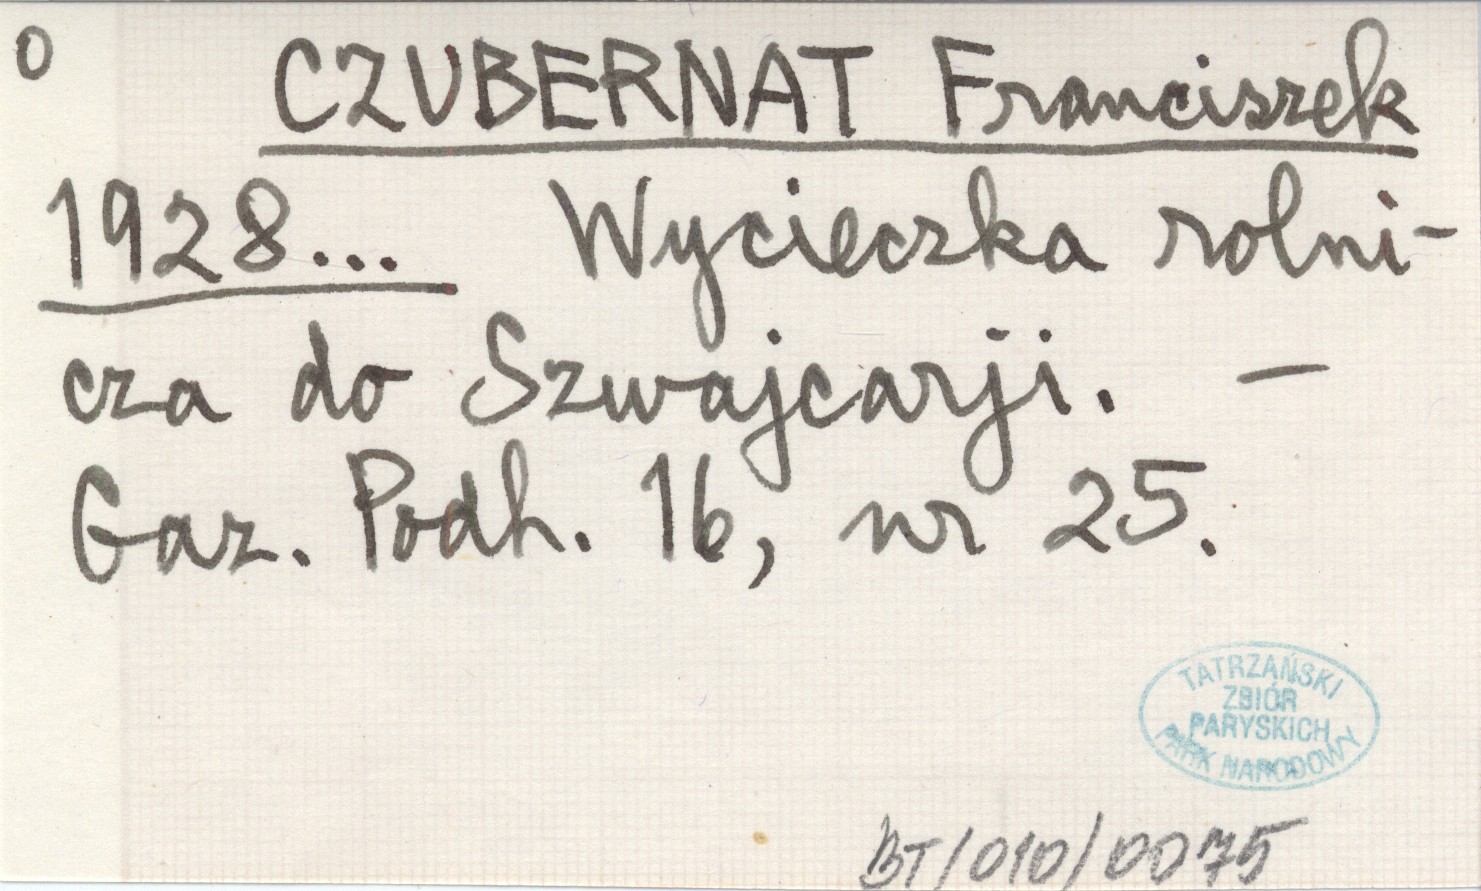 O
CZUBERNAT Franciszek
1928... Wycieczka rolni-
cza do Szwajcarji. –
Gaz. Podh. 16, nr 25.
TATRZAŃSKI
ZBIÓR
PARYSKICH
PARK NARODOWY
BT/010/0075